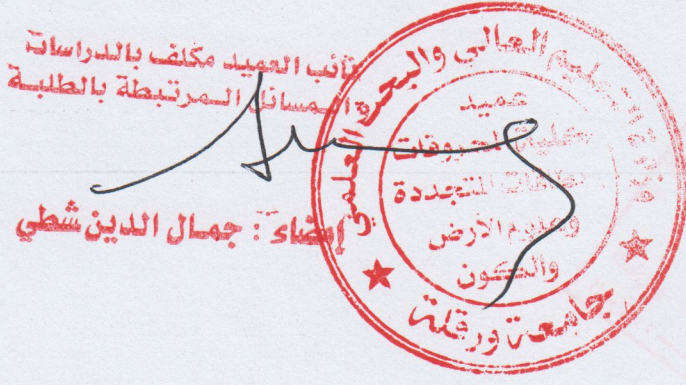 نائب العميد مكلف بالدراسات
المسائل المرتبطة بالطلبة
إمضاء : جمال الدين شطي
العالي والبحث العلمي
عميد
كلية المحروقات
الطاقات المتجددة
وعلوم الارض
والكون
جامعة ورقلة